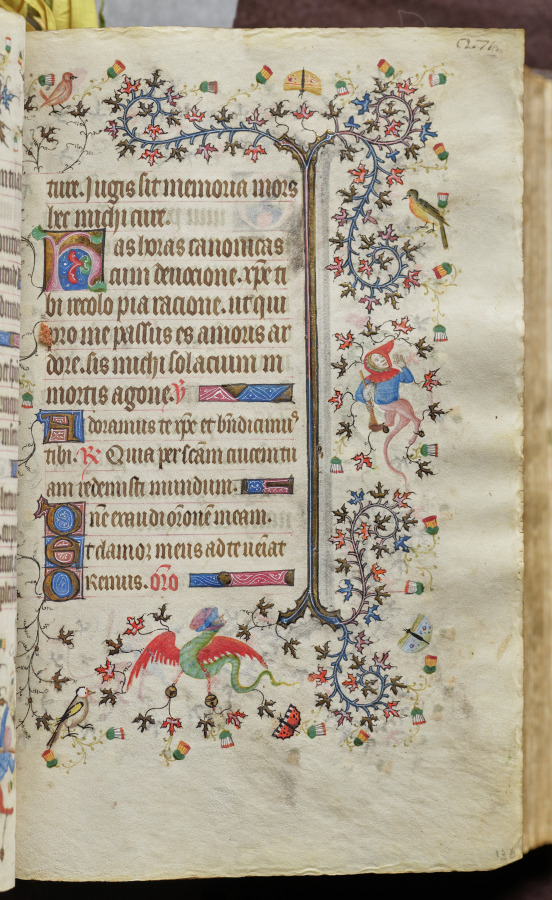 ture. Jugis sit memoria mors
hec michi cure.
Has horas canonicas
cum deuocione. xp̄e ti
bi recolo pia racione. ut qui
pro me passus es amoris ar
dore. sis michi solacium in
mortis agone. ℣
Adoramus te xp̄e et bn̄dicimus
tibi. ℟ Quia per sc̄am crucem tu
am redemisti mundum.
Dn̄e exaudi or̄onē meam.
Et clamor meus ad te ueniat
Oremus. or̄o